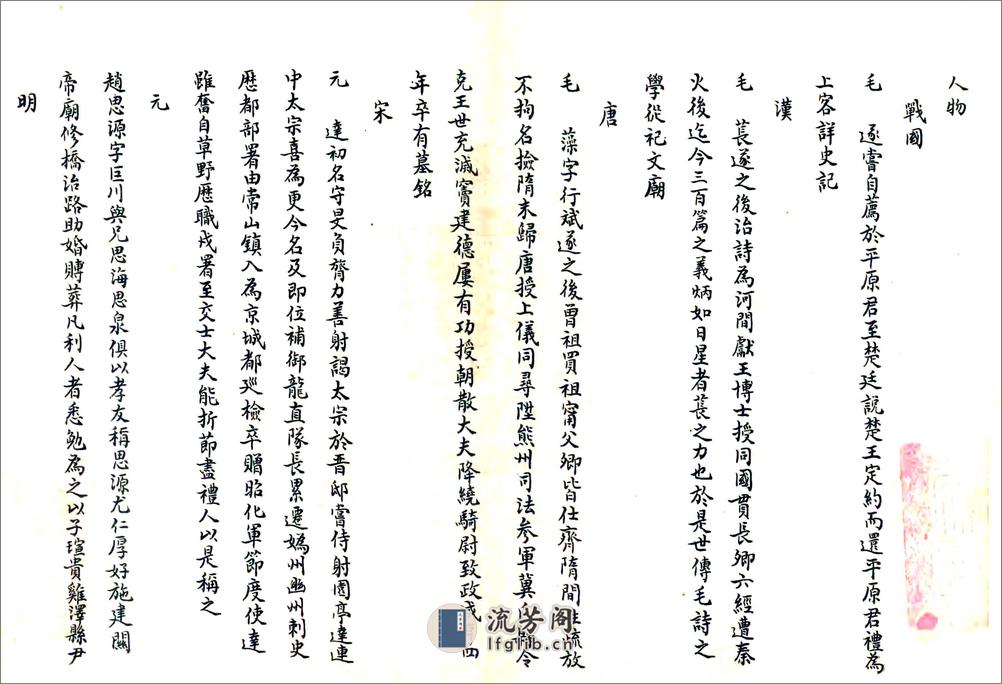 人物
戰國
毛　遂嘗自薦於平原君至楚廷說楚王定約而還平原君禮為
上客詳史記
漢
毛　萇遂之後治詩為河間獻王博士授同國貫長卿六經遭秦
火後迄今三百篇之義炳如日星者萇之力也於是世傳毛詩之
學從祀文廟
唐
毛　藻字行斌遂之後曾祖買祖甯父卿皆仕齊隋間性疏放
不拘名撿隋末歸唐授上儀同尋陞熊州司法參軍冀令
克王世充滅竇建德屢有功授朝散大夫降繞騎尉致政四
年卒有墓銘
宋
元　達初名守旻負膂力善射謁太宗於晋邸嘗侍射園亭達連
中太宗喜為更今名及即位補御龍直隊長累遷媯州幽州刺史
歷都部署由常山鎮入為京城都巡檢卒贈昭化軍節度使達
雖奮自草野歷職戎署至交士大夫能折節盡禮人以是稱之
元
趙思源字巨川與兄思海思泉俱以孝友稱思源尤仁厚好施建關
帝廟修橋治路助婚賻葬凡利人者悉勉為之以子瑄貴雞澤縣尹
明
流芳阁
lfglib.cn